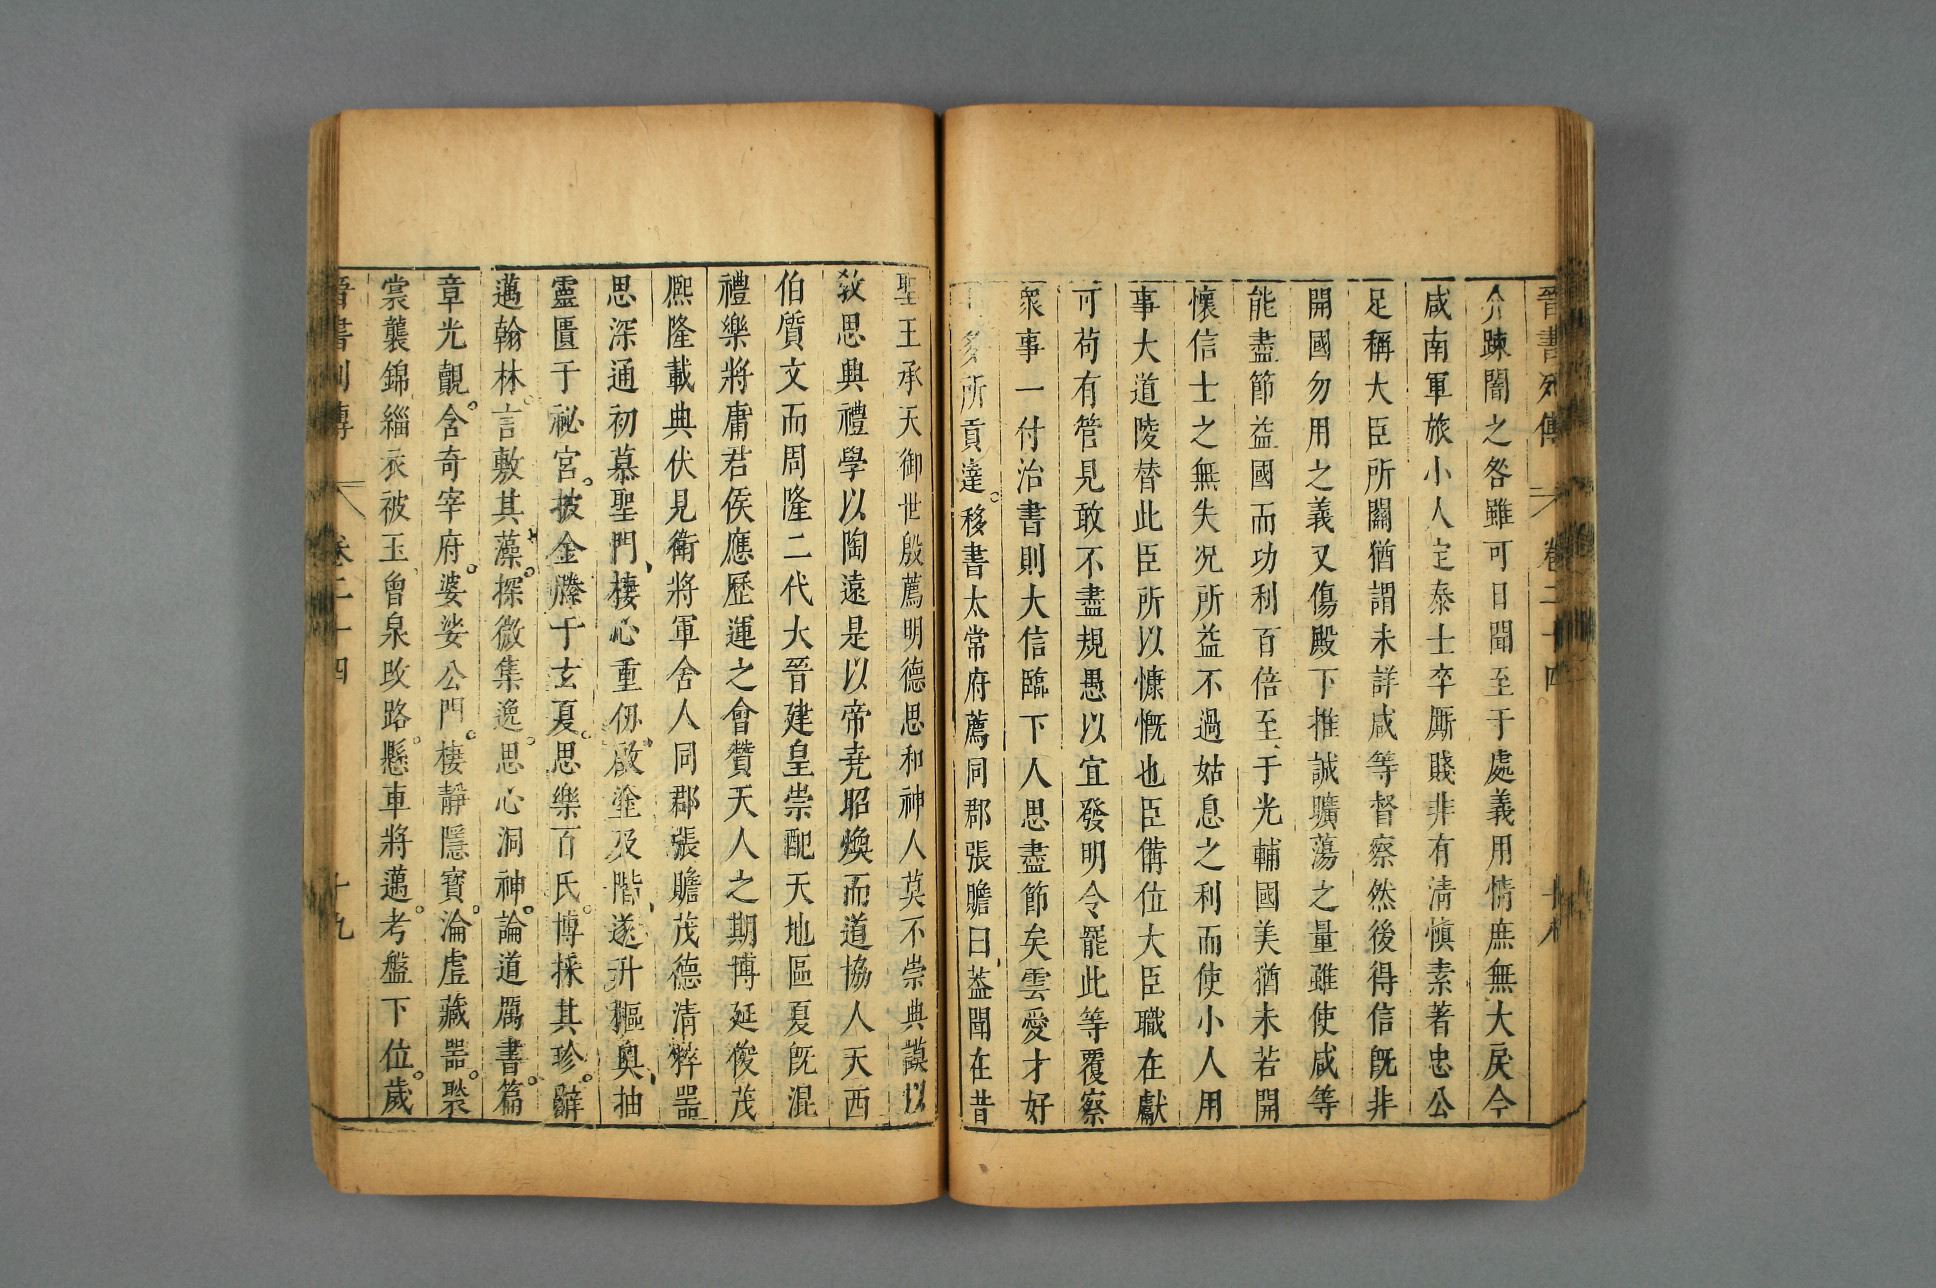 晉書列傳 卷二十四 十八
介疎闇之咎雖可日聞至于處義用情庶無大戾今
咸南軍旅小人定泰士卒厮賤非有清慎素著忠公
足稱大臣所關猶謂未詳咸等督察然後得信旣非
開國勿用之義又傷殿下推誠曠蕩之量雖使咸等
能盡節益國而功利百倍至于光輔國美猶未若開
懷信士之無失况所益不過姑息之利而使小人用
事大道陵替此臣所以慷慨也臣備位大臣職在獻
可苟有管見敢不盡規愚以宜發明令罷此等覆察
衆事一付治書則大信臨下人思盡節矣雲愛才好
士多所貢達。移書太常府薦同郡張贍曰、葢聞在昔
聖王承天御世殷薦明德思和神人莫不崇典謨以
敎思興禮學以陶遠是以帝堯昭煥而道協人天西
伯質文而周隆二代大晉建皇崇配天地區夏旣混
禮樂將庸若侯應歷運之會贊天人之期博延俊茂
熈隆載典伏見衛將軍舍人同郡張贍茂德清粹器
思深通初慕聖門、棲心重仭。啟塗及階、遂升樞奧、抽
靈匱于秘宮。披金縢于玄夏。思樂百氏。博採其珍。辭
邁翰林。言敷其藻。探微集逸。思心洞神。論道厲書。篇
章光覿。含奇宰府。婆娑公門。棲靜隱寶。淪虚藏器。褧
裳襲錦緇衣被玉曾泉改路。懸車將邁。考盤下位。歲
晉書列傳 卷二十四 十九